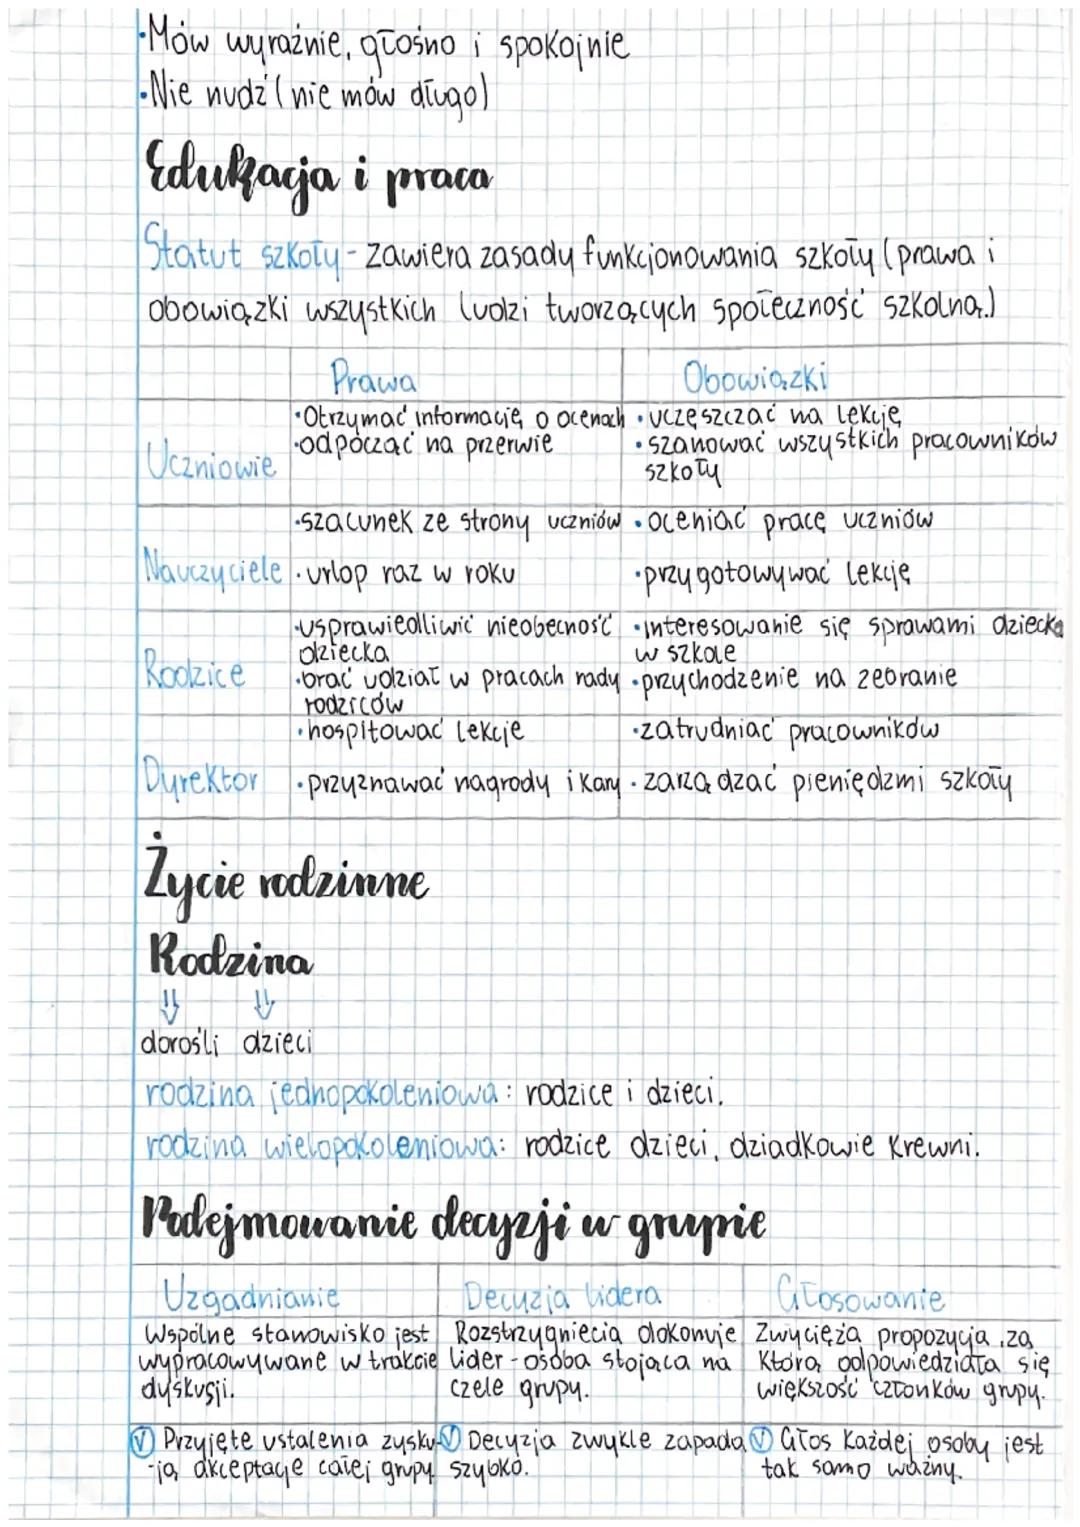 •Mów wyraźnie, głośno i spokojnie
•Nie nudź (nie mów długo)
Edukacja i praca
Statut szkoły - zawiera zasady funkcjonowania szkoły (prawa i
obowiązki wszystkich ludzi tworzących społeczność szkolną.)
Prawa Obowiązki
Uczniowie
•Otrzymać informację o ocenach
•odpocząć na przerwie
•uczęszczać na lekcję
•szanować wszystkich pracowników
szkoły
Nauczyciele
•szacunek ze strony uczniów
•urlop raz w roku
•oceniać pracę uczniów
•przygotowywać lekcję
Rodzice
•usprawiedliwić nieobecność
dziecka
•brać udział w pracach rady
rodziców
•interesowanie się sprawami dziecka
w szkole
•przychodzenie na zebranie
Dyrektor
•hospitować lekcje
•przyznawać nagrody i kary
•zatrudniać pracowników
•zarządzać pieniędzmi szkoły
Życie rodzinne
Rodzina
⇓ ⇓
dorośli dzieci
rodzina jednopokoleniowa: rodzice i dzieci.
rodzina wielopokoleniowa: rodzice dzieci, dziadkowie krewni.
Podejmowanie decyzji w grupie
Uzgadnianie Decyzja lidera Głosowanie
Wspólne stanowisko jest
wypracowywane w trakcie
dyskusji.
Rozstrzygnięcia dokonuje
lider - osoba stojąca na
czele grupy.
Zwycięża propozycja .za
którą odpowiedziała się
większość członków grupy.
V Przyjęte ustalenia zysku-
-ją akceptację całej grupy
V Decyzja zwykle zapada
szybko.
V Głos każdej osoby jest
tak samo ważny.